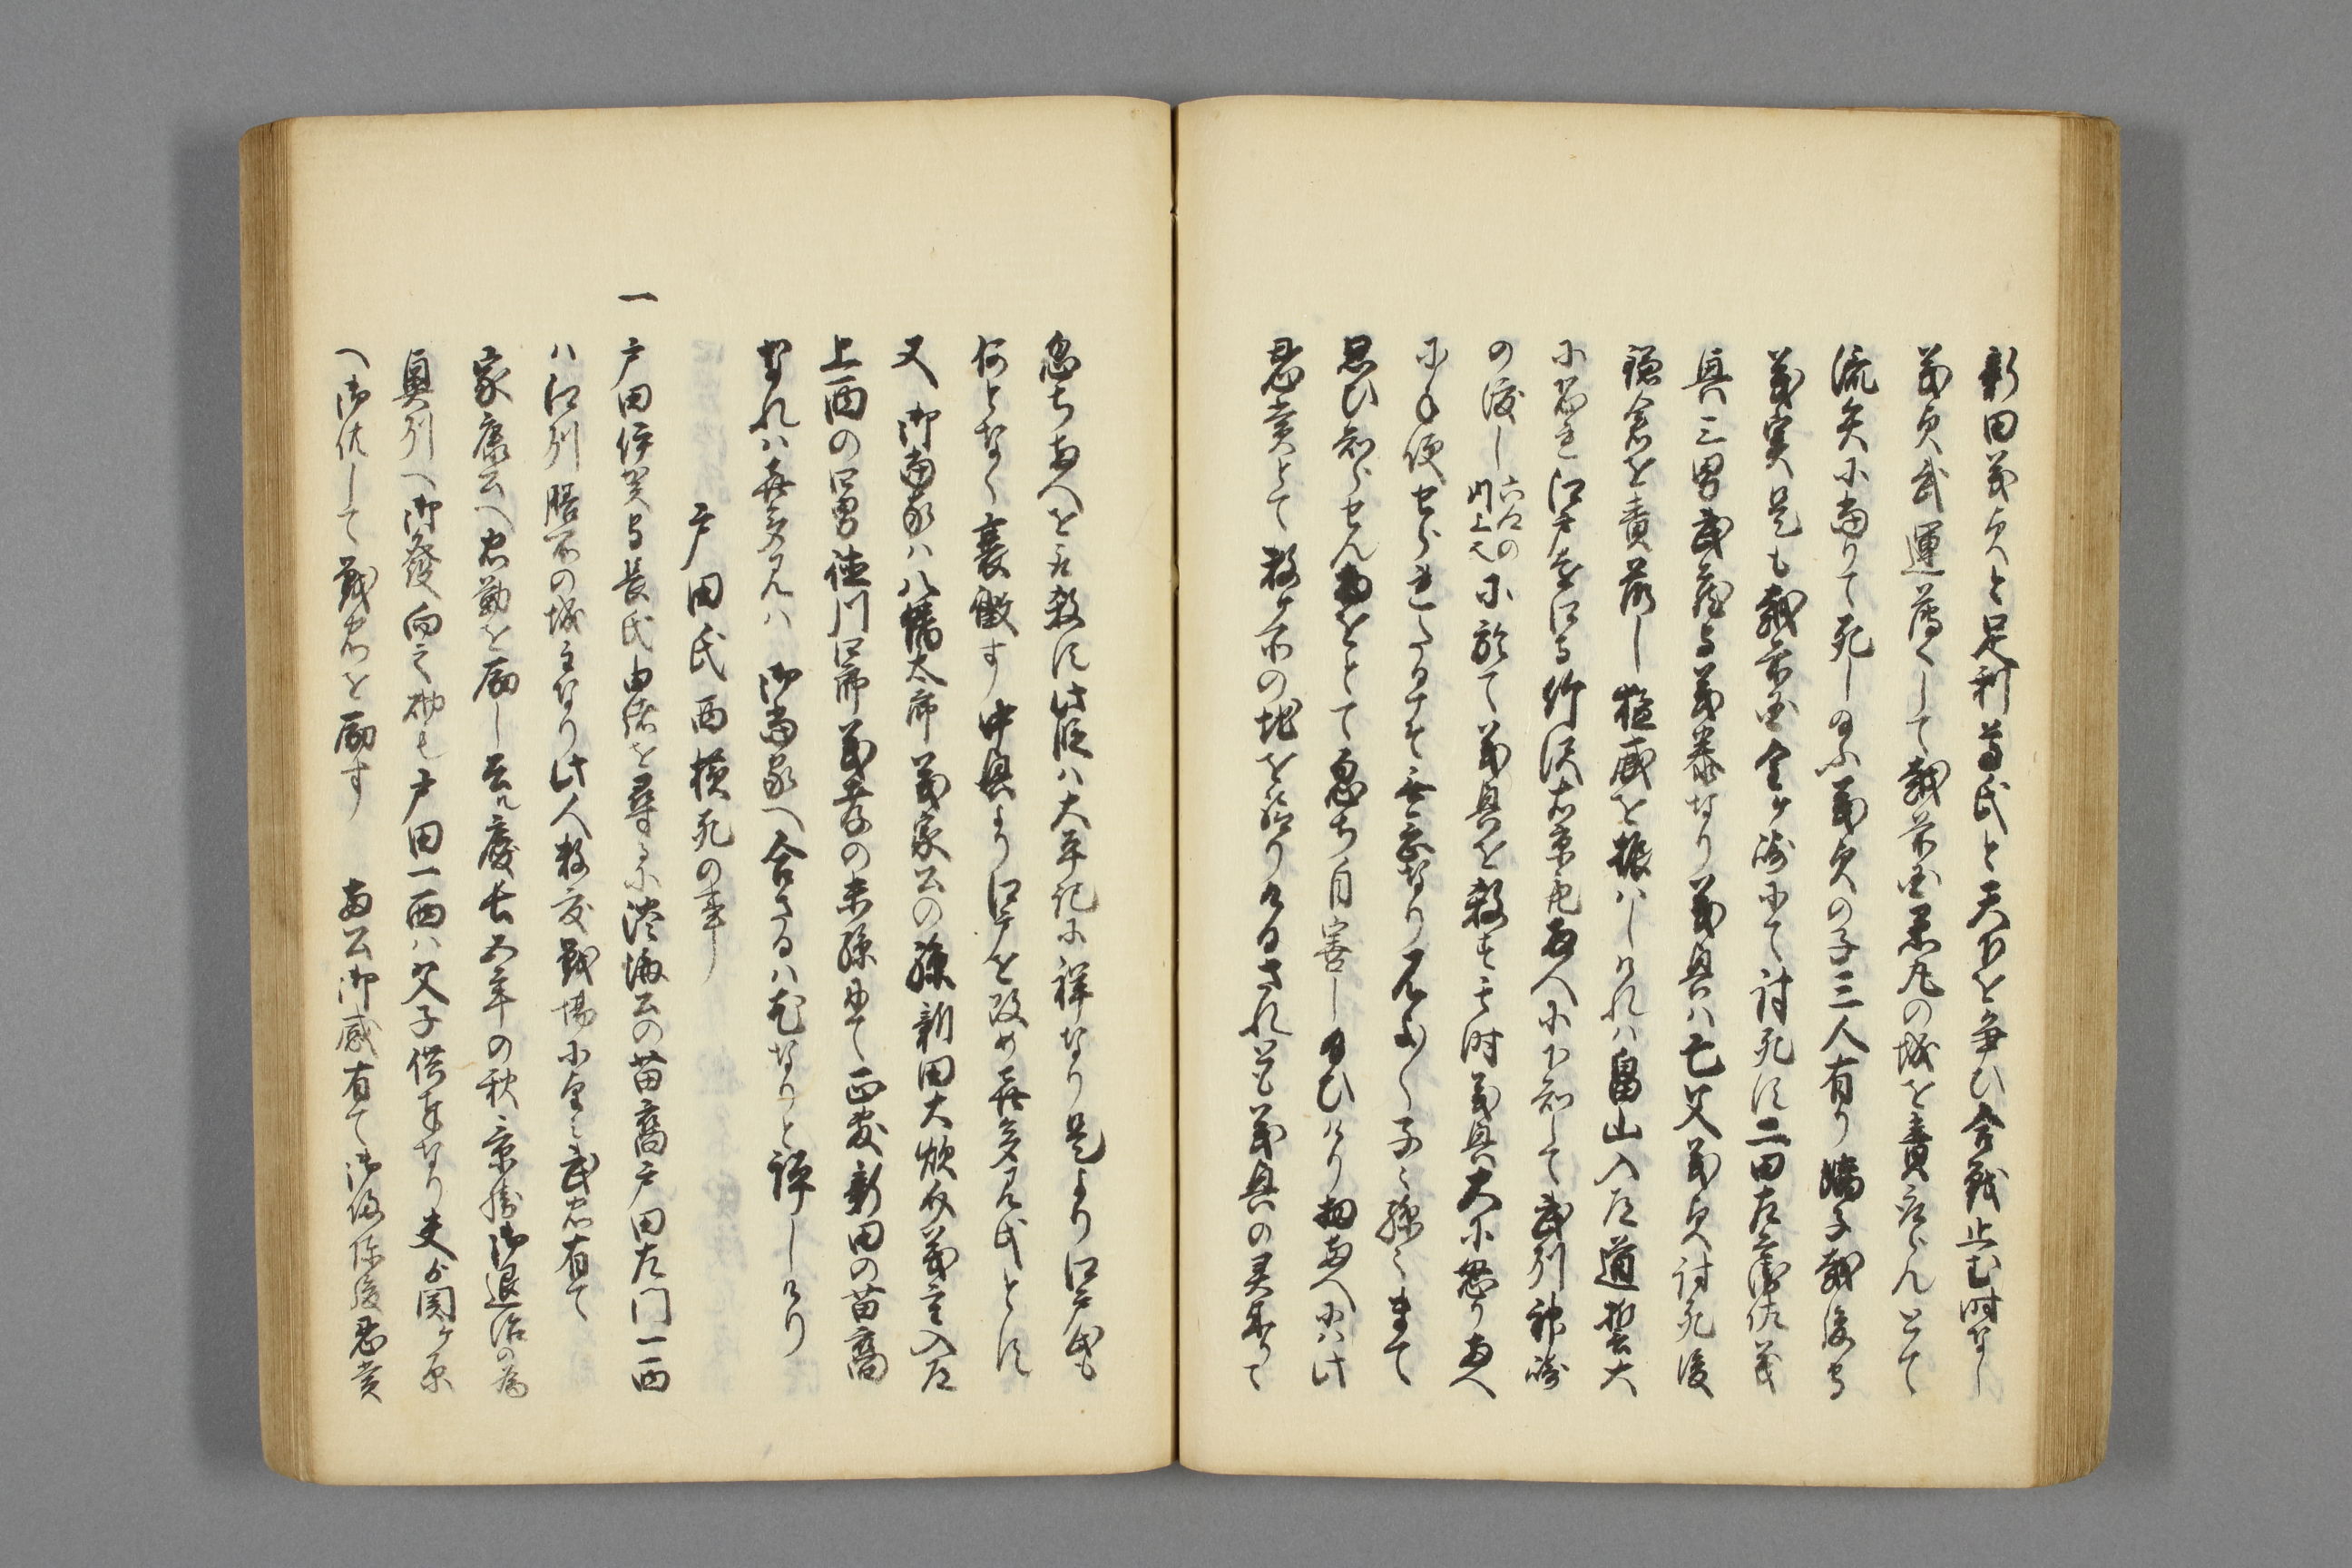 新田義貞と足利尊氏と天下を争ひ合戦止む時なし
義貞武運薄くして越前国黒丸の城を責落さんとて
流矢に当りて死し給ふ義貞の子三人有り嫡子越後守
義実是も越前国金ケ崎にて討死す二男左兵衛佐義
興三男武蔵守義宗なり義興は亡父義貞討死後
鎌倉を責落し権威を振はしけれは畠山入道道誓大
に恐れ江戸遠江守竹沢右京亮両人に下知して武州神崎
の渡し六江の川上也に於て義興を殺す其時義興大に怒り両人
に便せられたるそ無念なり子々孫々まて
思ひ知らせん物をとて忽ち自害し給ひけり両人には此
忠賞とて数ケ所の地を給りけるされとも義興の霊来りて
忽ち両人を取殺す此段は太平記に詳なり是より江戸氏も
何となく衰微す中興より江戸を改め喜多見氏とす
又御当家は八幡太郎義家公の孫新田大炊介義重入道
上西の四男徳川四郎義季の末孫にて正敷新田の苗裔
なれは喜多見は御当家へ合さるは尤なりと評しけり
戸田氏西横死の事
一 戸田伊賀守長氏由緒を尋るに淡海公の苗裔戸田左門一西
は江州膳所の城主なり此人数度戦場に出て武忠有て
家康公へ忠勤を励し去る慶長五年の秋景勝御退治の為
奥州へ御発向之砌も戸田一西は父子供奉なり夫より関ケ原
へ御供して戦忠を励す 両公御感有て御帰陣後忠賞